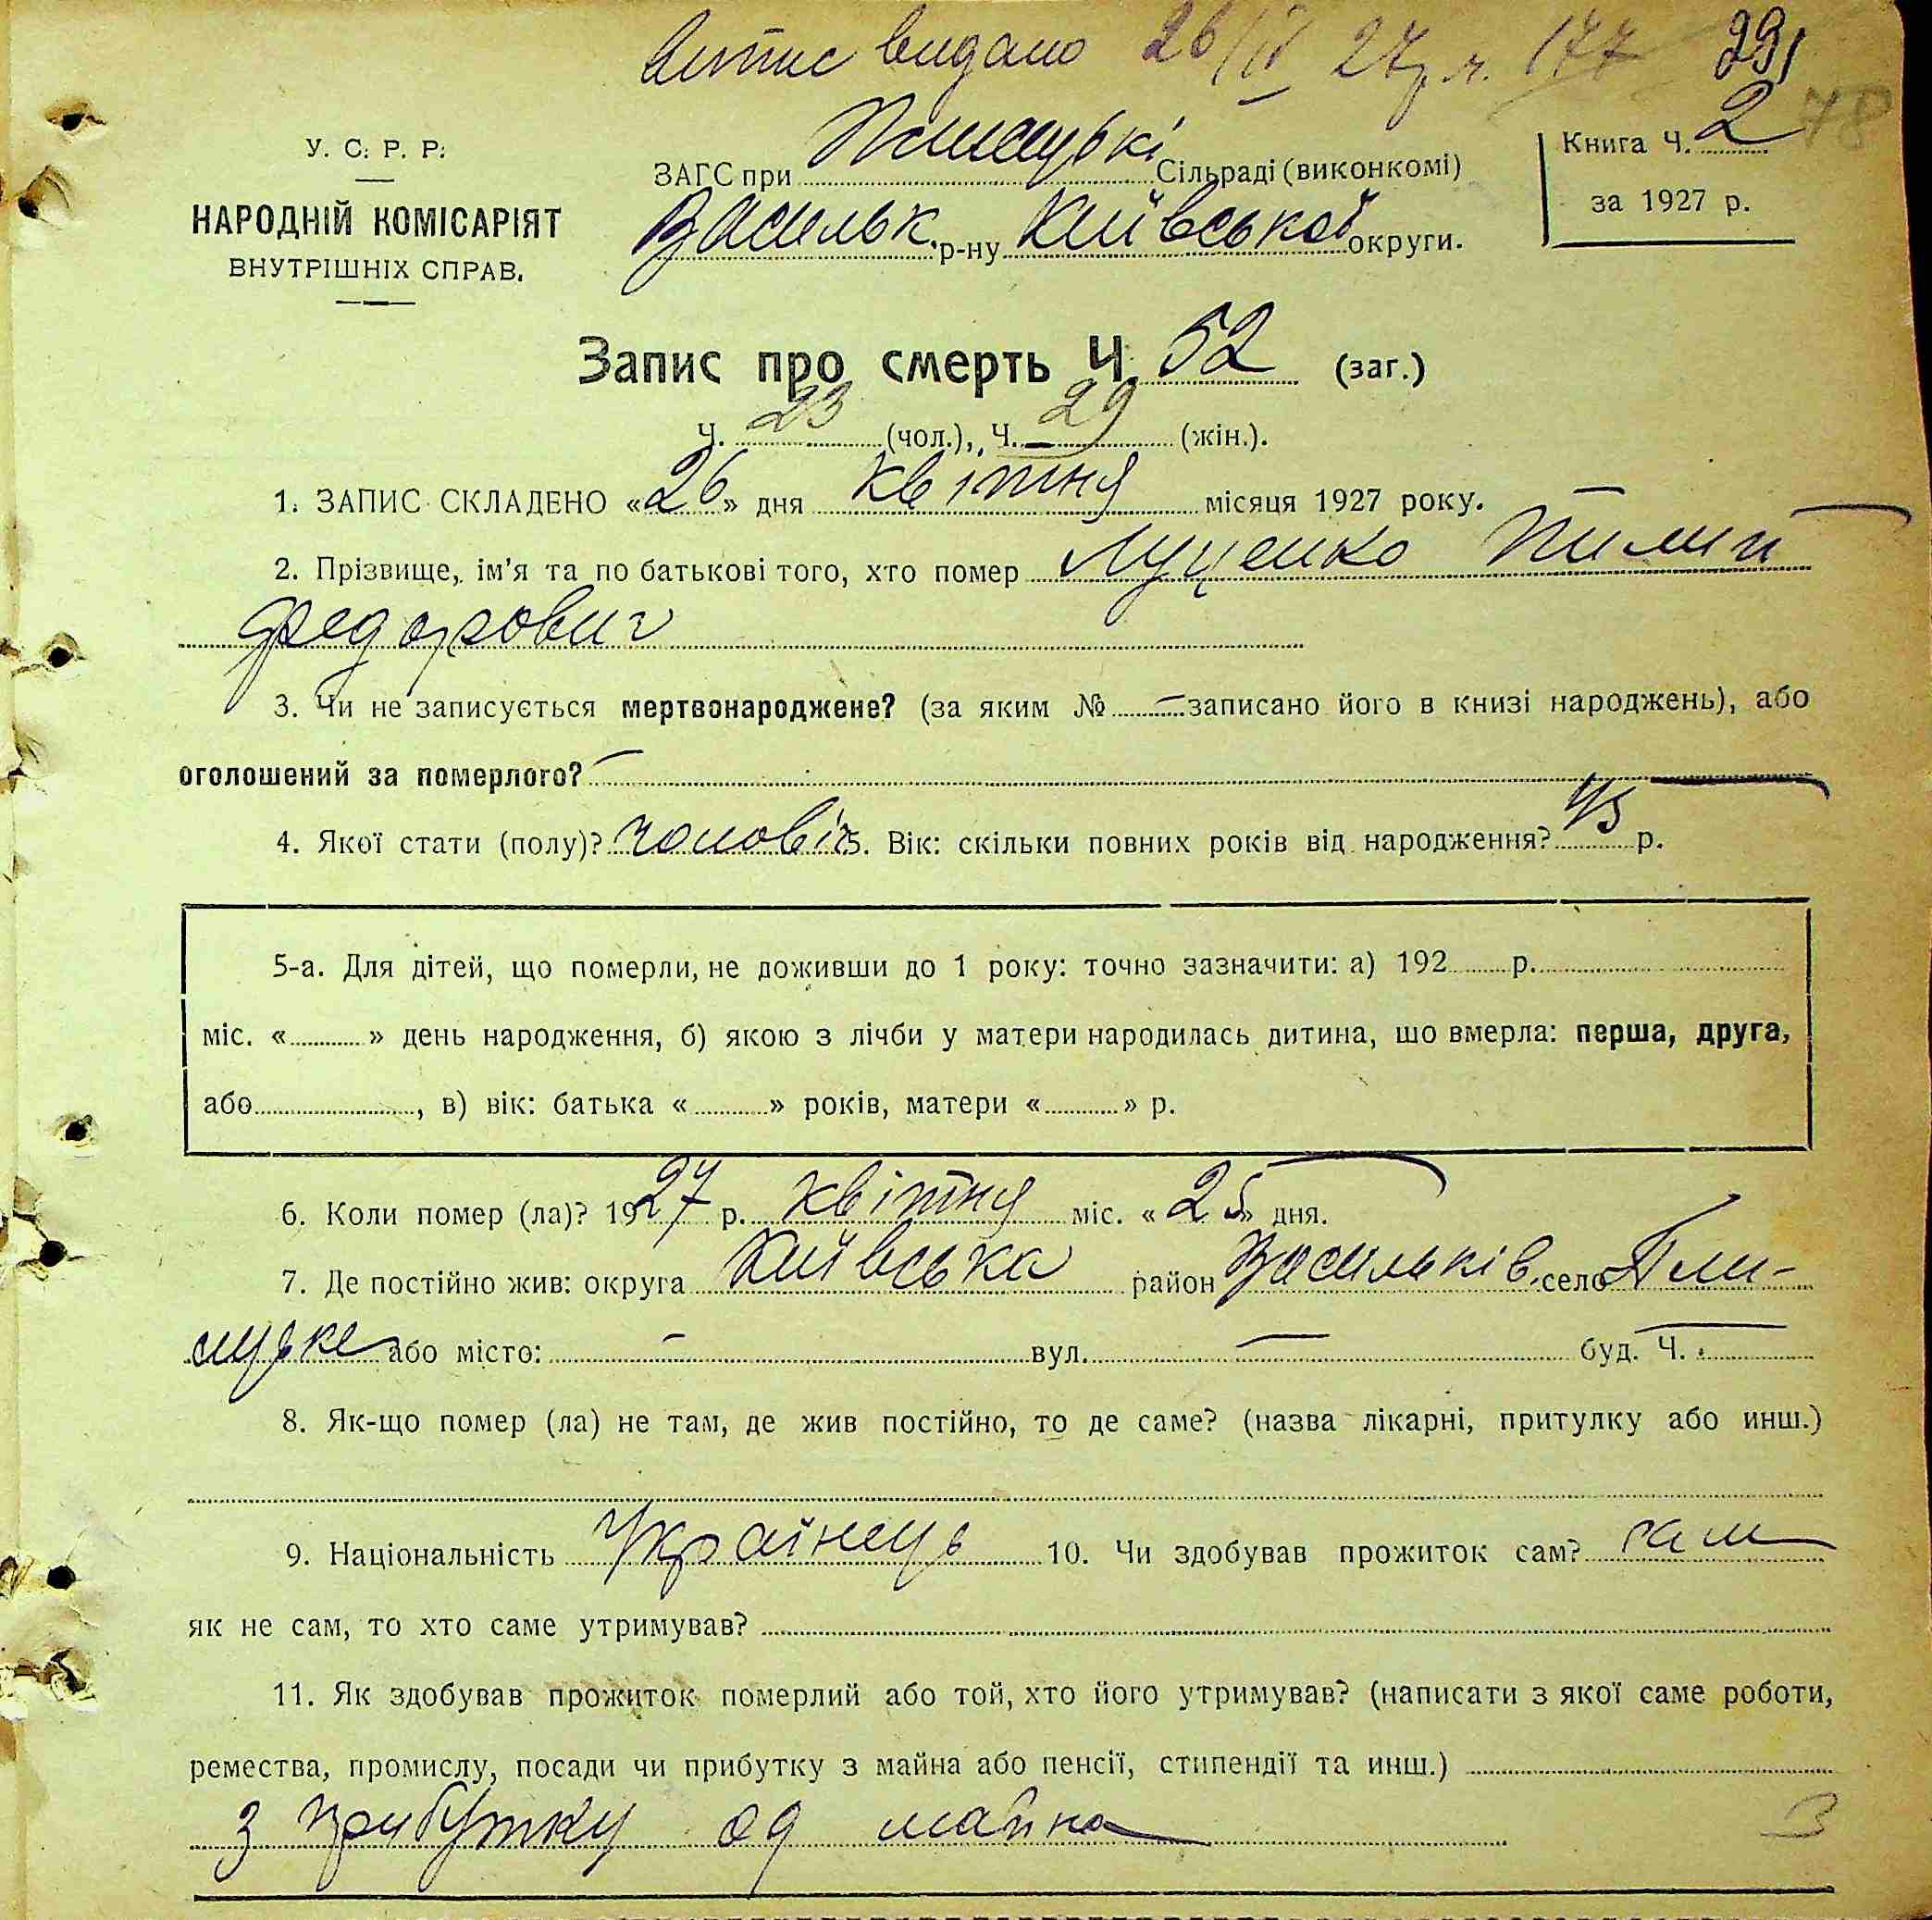 Витис видано 26/IV 27 р. ч. 177 291
78
У. С. Р. Р.
НАРОДНІЙ КОМІСАРІЯТ
ВНУТРІШНІХ СПРАВ.
ЗАГС при Плисецькі Сільраді (виконкомі)
Васильк. р-ну Київської округи.
Книга Ч. 2
за 1927 р.
Запис про смерть Ч. 52 (заг.)
Ч. 23 (чол.), Ч. 29 (жін.).
1. ЗАПИС СКЛАДЕНО «26» дня квітня місяця 1927 року.
2. Прізвище, ім'я та по батькові того, хто помер Луценко Пилип
Федорович
3. Чи не записується мертвонароджене? (за яким № — записано його в книзі народжень), або
оголошений за померлого? —
4. Якої стати (полу)? чоловіч. 5. Вік: скільки повних років від народження? 45 р.
5-а. Для дітей, що померли, не доживши до 1 року: точно зазначити: а) 192 р.
міс. « » день народження, б) якою з лічби у матери народилась дитина, шо вмерла: перша, друга,
або , в) вік: батька « » років, матери « » р.
6. Коли помер (ла)? 1927 р. квітня міс. «25» дня.
7. Де постійно жив: округа Київська район Васильків. село Пли-
сцьке або місто: — вул. — буд. Ч. —
8. Як-що помер (ла) не там, де жив постійно, то де саме? (назва лікарні, притулку або инш.)
9. Національність Українець 10. Чи здобував прожиток сам? сам
як не сам, то хто саме утримував?
11. Як здобував прожиток померлий або той, хто його утримував? (написати з якої саме роботи,
ремества, промислу, посади чи прибутку з майна або пенсії, стипендії та инш.)
з прибутку од майна 3